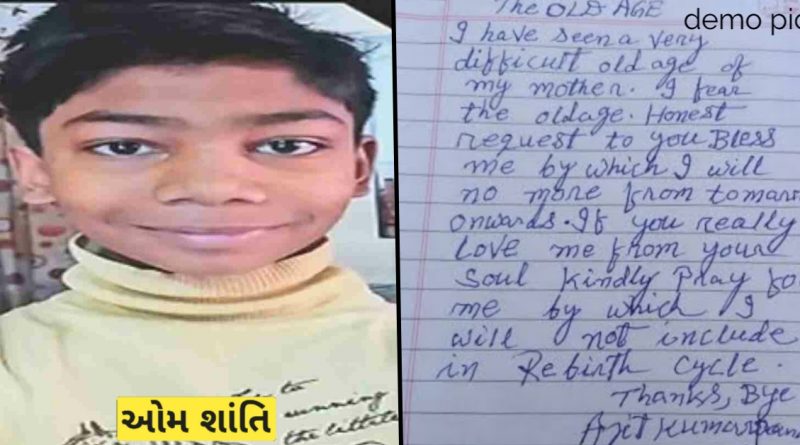 ઓમ શાંતિ
demo pic
The OLD AGE
I have seen a very
difficult old age of
my mother. I fear
the oldage. Honest
request to you Bless
me by which I will
no more from tomarr
onwards. If you really
Love me from your
Soul Kindly Pray fo
me by which I
will not include
in Rebirth Cycle.
Thanks, Bye
Ajit Kumar